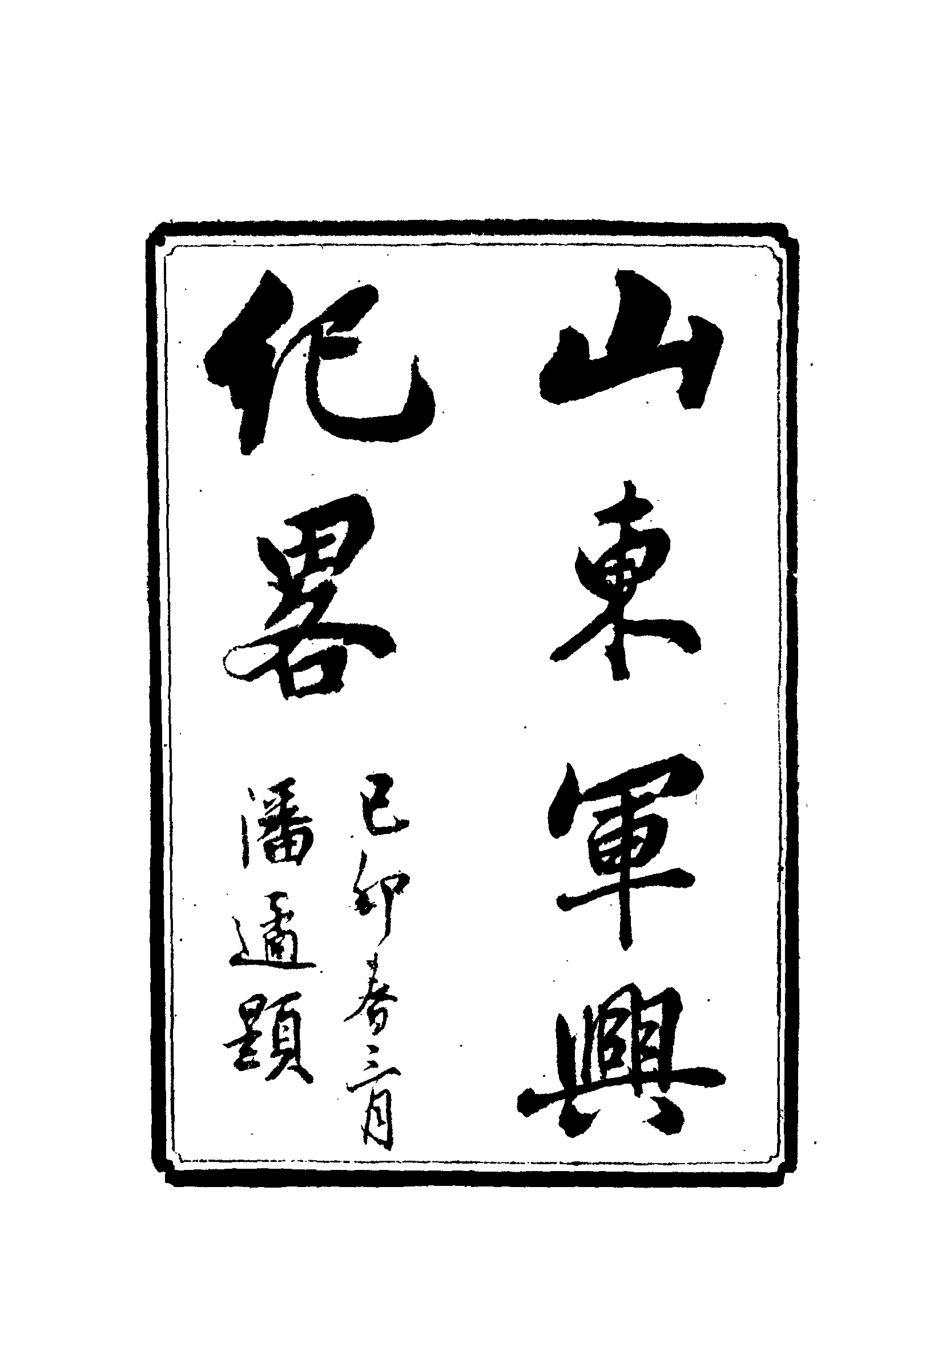 山東軍興
紀畧
己卯春三月
潘遹題